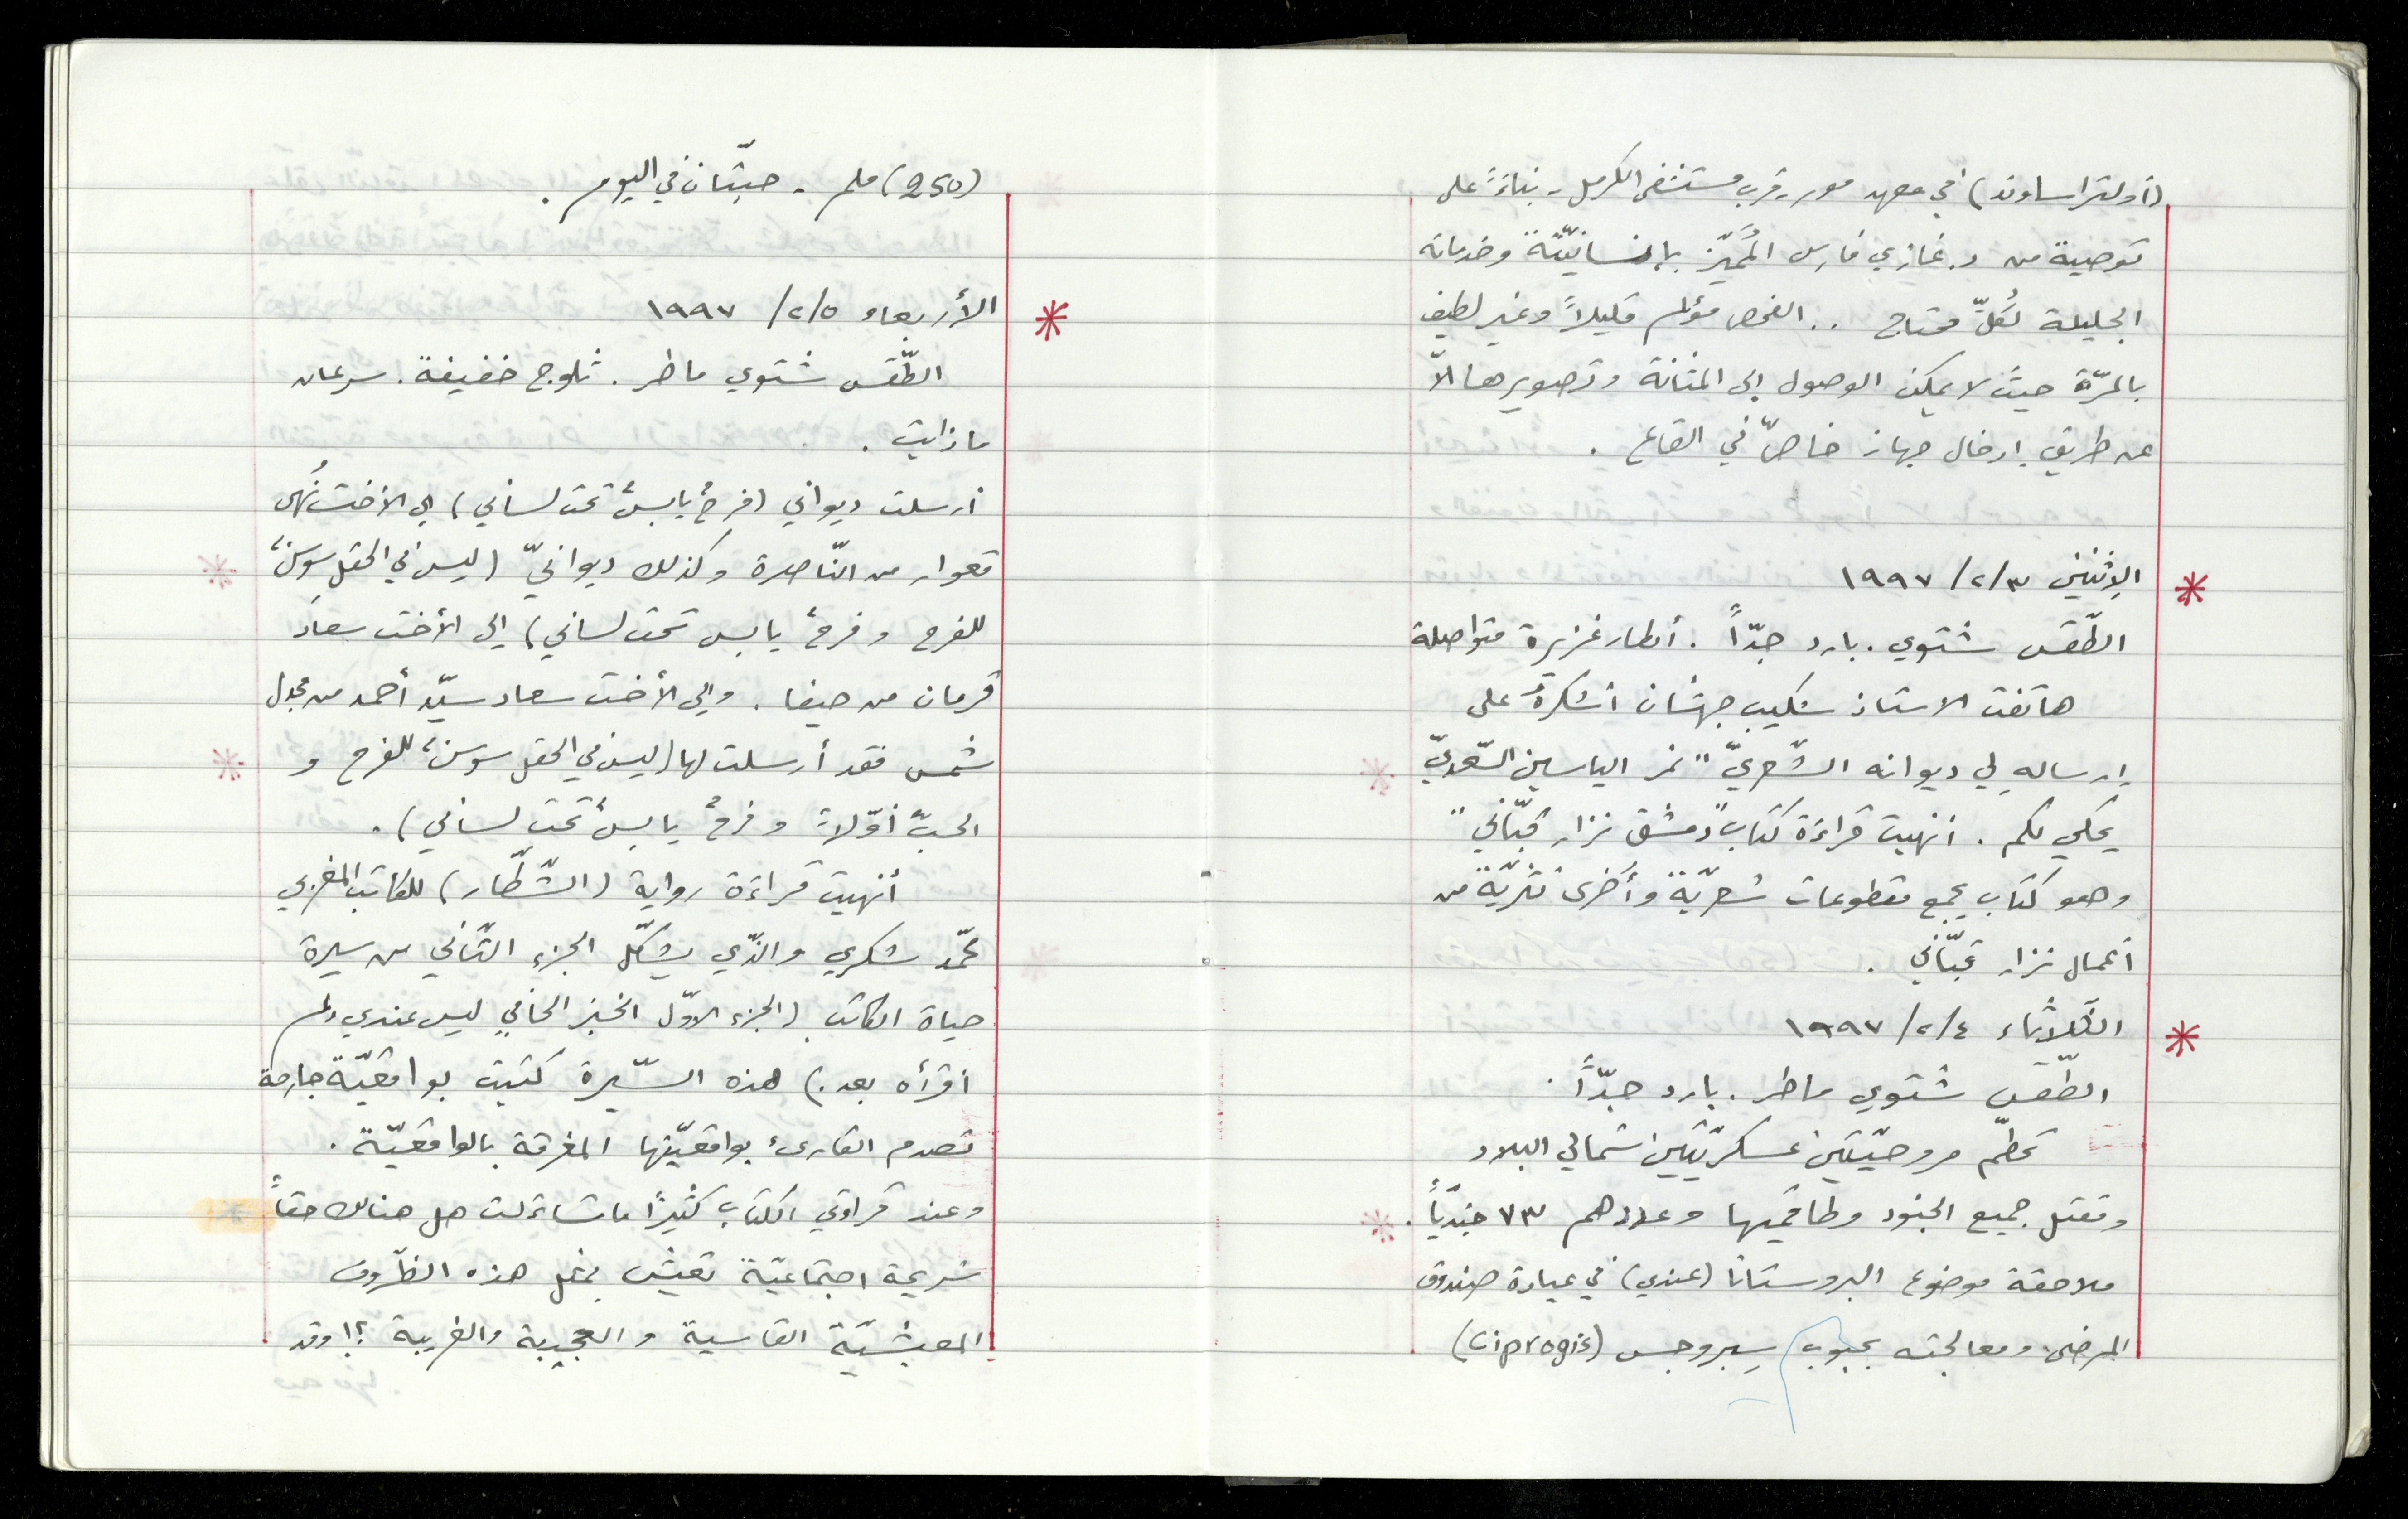 (أولتراساوند) في معهد مور - قرب مستشفى الكرمل - بناءً على
توصية من د. غازي فارس المُميّز بإنسانيّتة وخدماته
الجليلة لكلّ محتاج .. الفحص مؤلم قليلاً وغير لطيف
بالمرّة حيث لا يمكن الوصول إلى المثانة وتصويرها الاّ
عن طريق إدخال جهاز خاصّ في القاع .
* الإثنين ٣/٢/ ١٩٩٧
الطّقس شتوي . بارد جدّاً . أمطار غزيرة متواصلة
هاتفت الاستاذ شكيب جهشان أشكرهُ على
إرسالهِ لي ديوانه الشّعريّ "نمر الياسين السّعديّ
يحكي لكم . أنهيت قراءة كتاب "دمشق نزار قبّاني"
وهو كتاب يجمع مقطوعات شعريّة وأخرى نثريّة من
أعمال نزار قبّاني .
* الثّلاثاء ٤/٢/ ١٩٩٧
الطّقس شتوي ماطر . بارد جدّاً .
تحطّم مروحيّتين عسكريّتين شمالي البلاد
ومقتل جميع الجنود وطاقميها وعددهم ٧٣ جنديّاً .
ملاحقة موضوع البروستاتا (عندي) في عيادة صندوق
المرضى ومعالجته بحبوب سِبروجس (Ciprogis)
(250) ملم - حبّتان في اليوم .
* الأربعاء ٥/٢/ ١٩٩٧
الطّقس شتوي ماطر . ثلوج خفيفة . سرعان
ما ذابت .
أرسلت ديواني (فرحٌ يابسٌ تحت لساني) إلى الأخت نُهى
قعوار من النّاصرة وكذلك ديوانيّ (ليس في الحقلِ سوسنٌ
للفرح وفرحٌ يابس تحت لساني) إلى الأخت سعاد
قرمان من حيفا . وإلى الأخت سعاد سيّد أحمد من مجدل
شمس فقد أرسلت لها (ليس في الحقل سوسنٌ للفرح و
الحبّ أوّلاً وفرحٌ يابسٌ تحت لساني) .
أنهيت قراءة رواية (الشّطّار) للكاتب المغربي
محمّد شكري والذّي يشكّل الجزء الثّاني من سيرة
حياة الكاتب (الجزء الأوّل الخبز الحافي ليس عندي ولم
أقرأه بعد .) هذه السّيرة كتبت بواقعيّة جارحة
تصدم القارىء بواقعيّتها المغرقة بالواقعيّة .
وعند قراءتي الكتاب كثيرًا ما تساءلت هل هنالك حقاً
شريحة اجتماعيّة تعيش بمثل هذه الظّروف
المعيشيّة القاسية والعجيبة والغريبة ؟! وقد